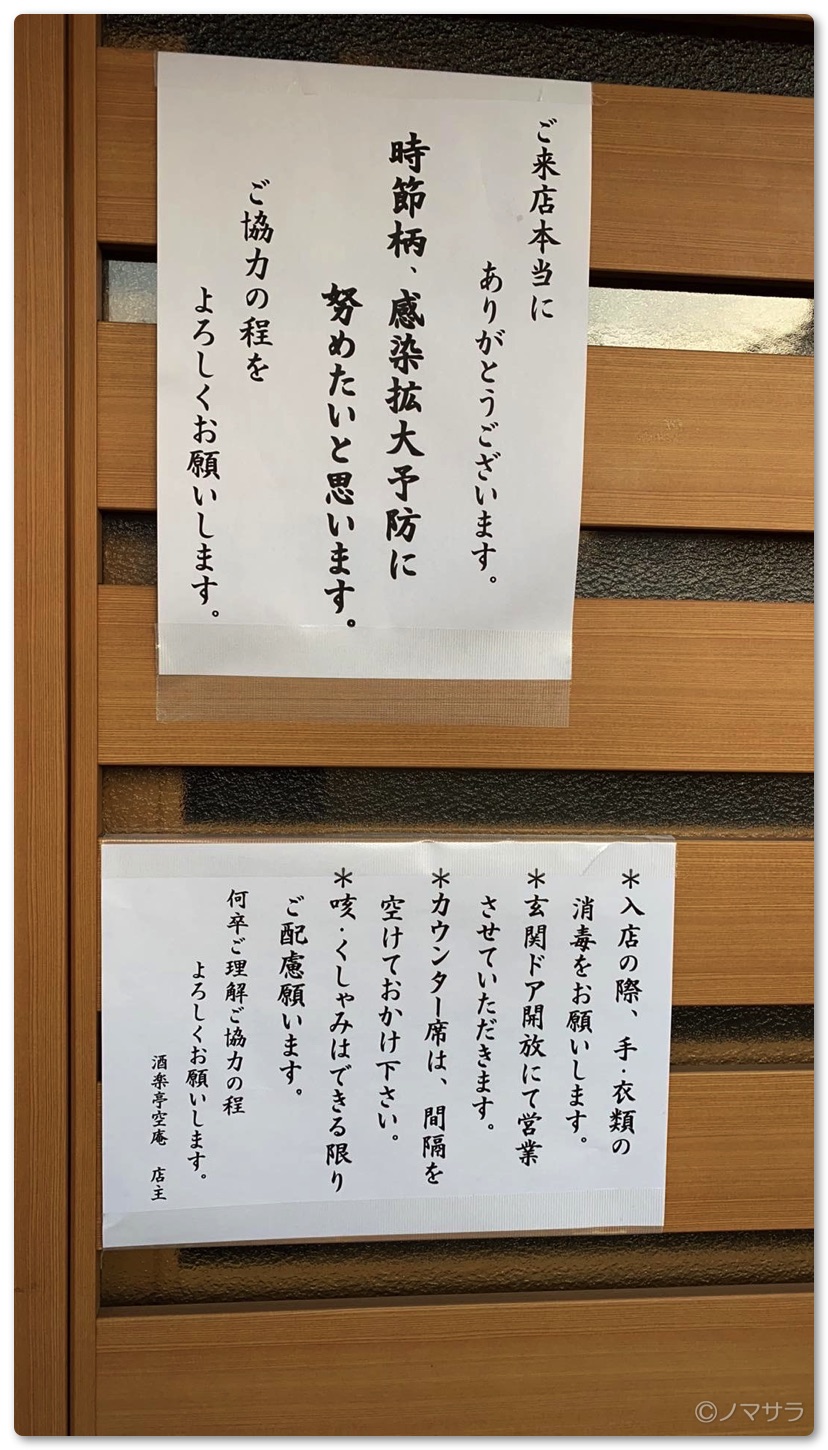 ご来店本当に
ありがとうございます。
時節柄、感染拡大予防に
努めたいと思います。
ご協力の程を
よろしくお願いします。
＊入店の際、手・衣類の
消毒をお願いします。
＊玄関ドア開放にて営業
させていただきます。
＊カウンター席は、間隔を
空けておかけ下さい。
＊咳・くしゃみはできる限り
ご配慮願います。
何卒ご理解ご協力の程
よろしくお願いします。
酒楽亭空庵　店主
©ノマサラ